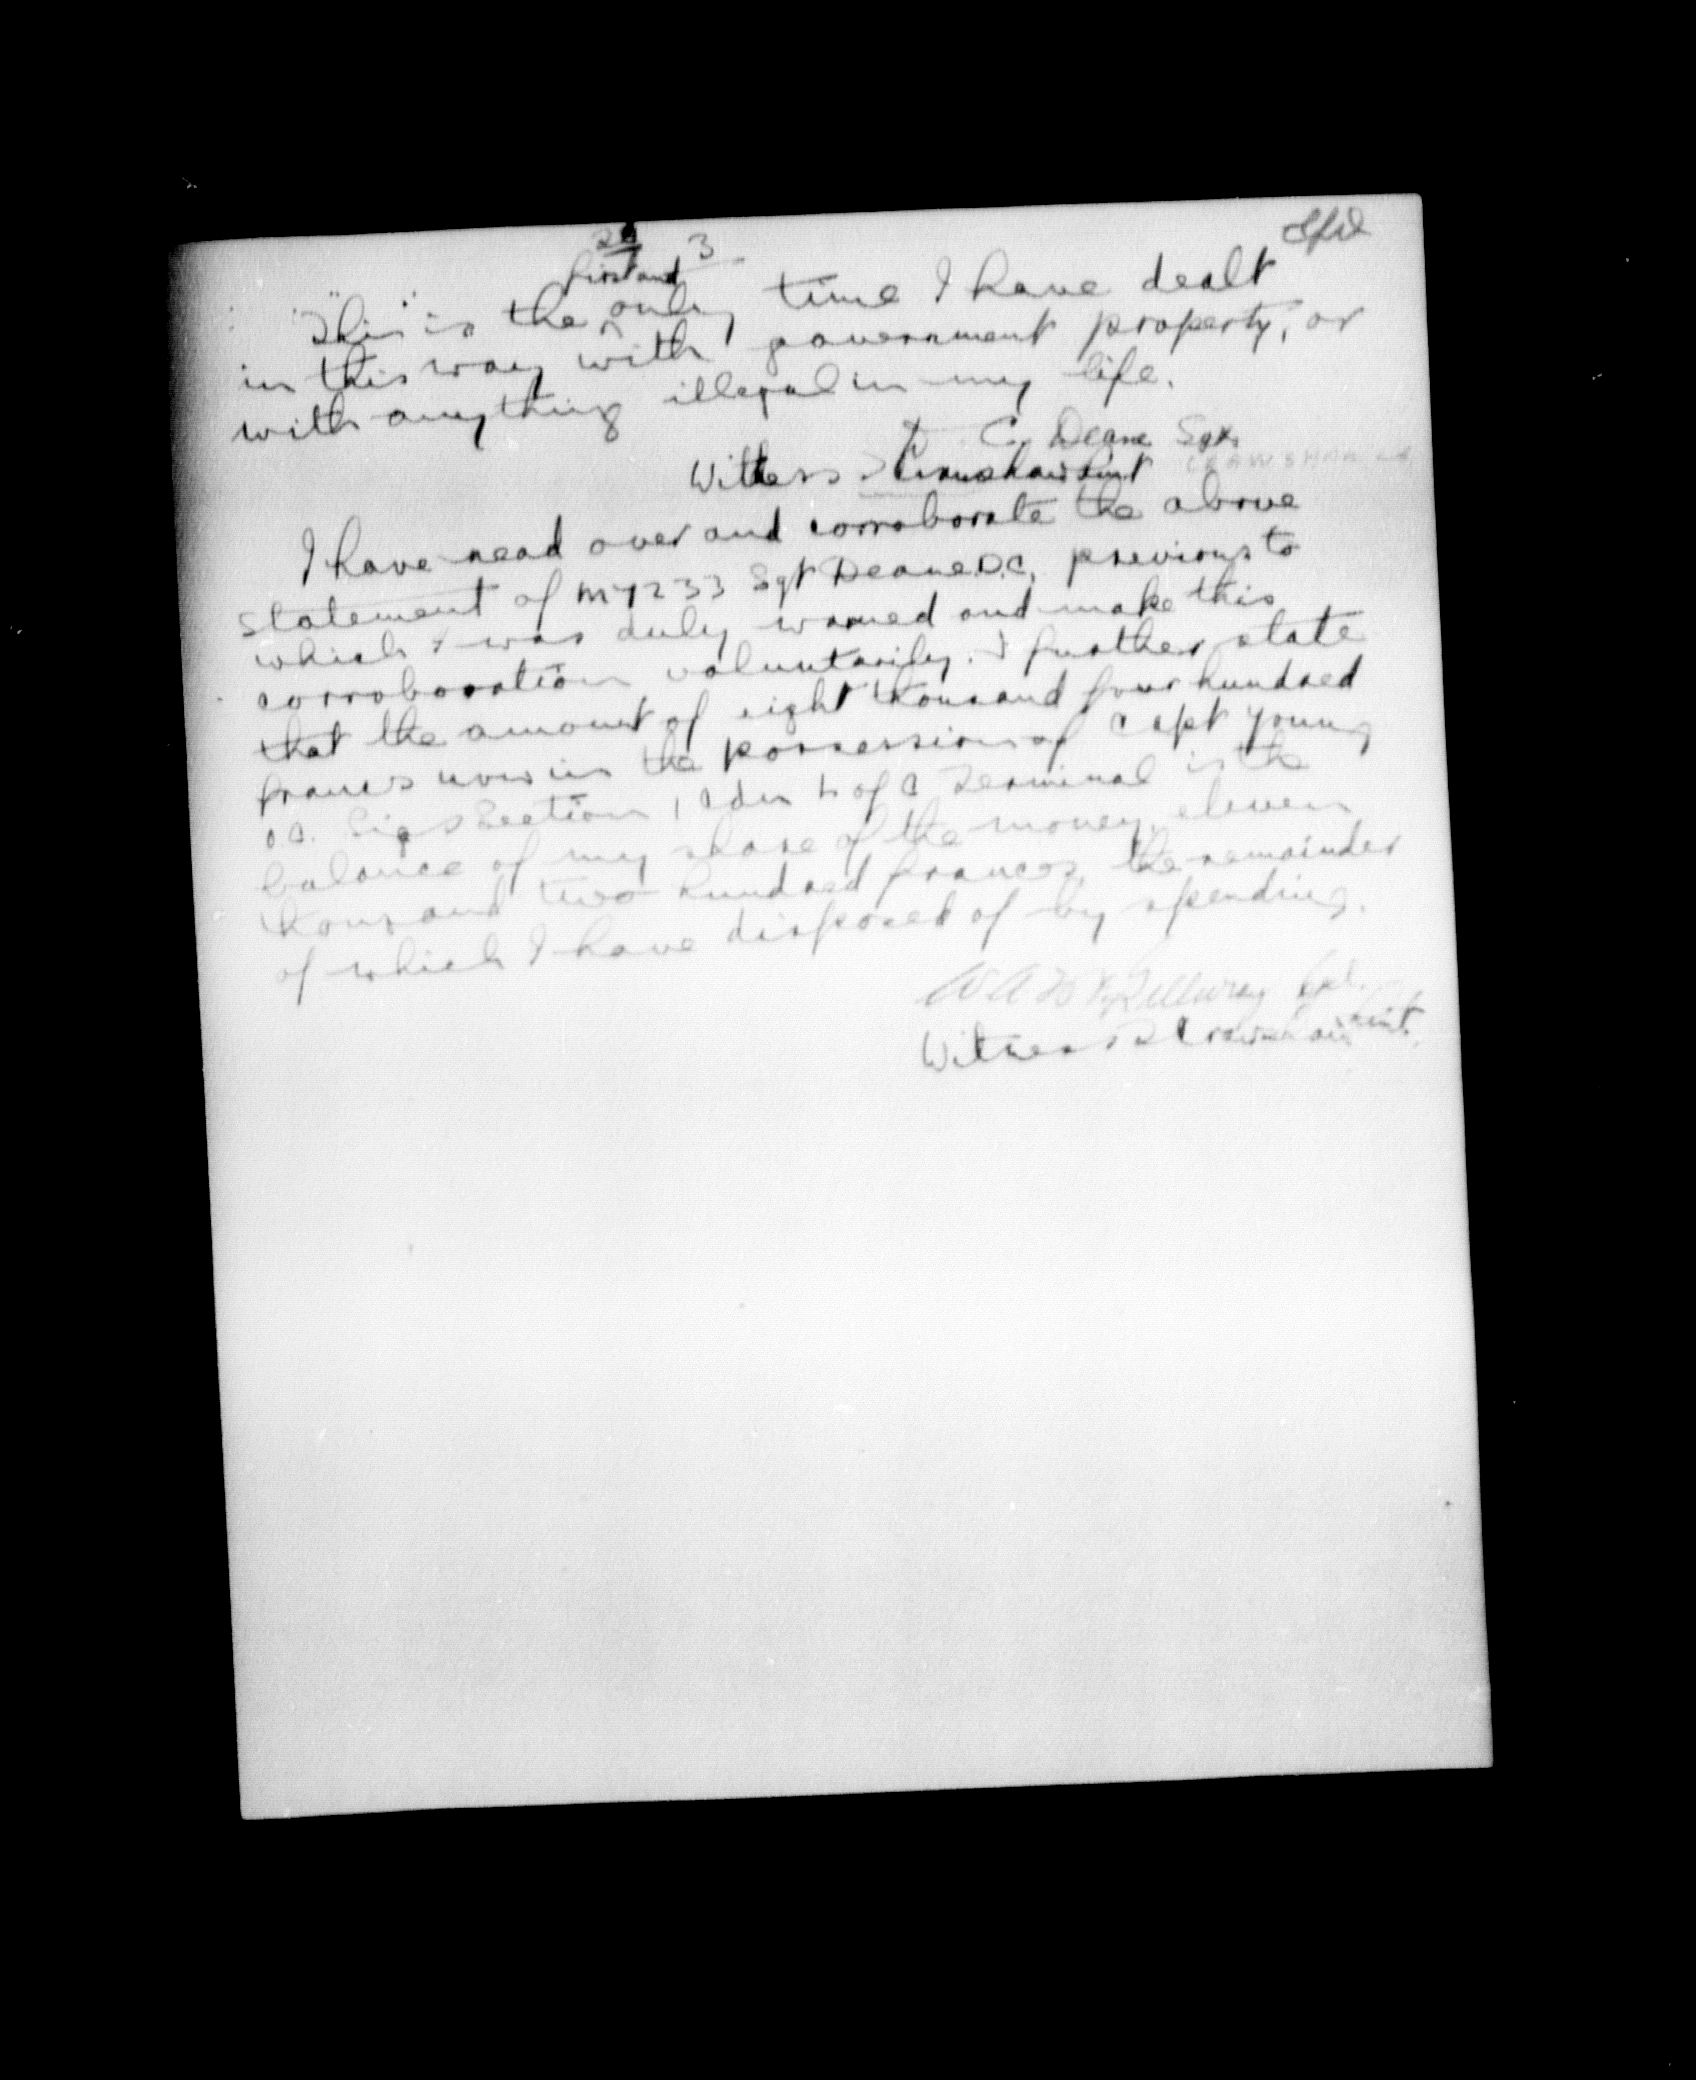 3
first and
"This" is the only time I have dealt
in this way with government property, or
with anything illegal in my life.
D. C. Deane Sgt.
Witness Crawshaw Lieut
I have read over and corroborate the above
statement of M7233 Sgt Deane D.C. previous to
which I was duly warned and make this
corroboration voluntarily. I further state
that the amount of eight thousand four hundred
francs now in the possession of Capt Young
O.C. Sigs Section, 1 Cdn L of C Terminal is the
balance of my share of the money, eleven
thousand two hundred francs, the remainder
of which I have disposed of by spending.
Witness Crawshaw Lieut.